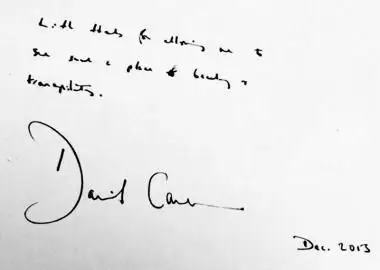 With thanks for allowing me to
see such a place of beauty &
tranquility.
David Cam
Dec. 2013